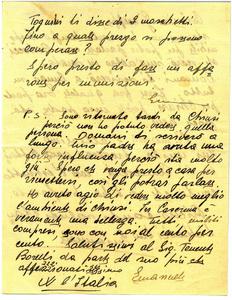 Tognini ti disse di 2 moschetti.
fino a quale prezzo si possono
comperare?
Spero presto di fare un affa
rone per munizioni
P.S. Sono ritornato tardi da Chiusi
perciò non ho potuto vedere quella
persona. Domani ti scriverò a
lungo. Tuo padre ha avuto una
forte influenza perciò sta molto
giù. Spero che venga presto a casa per
rimettersi, così gli potrai parlare.
Ho avuto agio di vedere molto meglio
l'ambiente di Chiusi. In Caserma è
veramente una bellezza. Tutti i militi
compresi sono con noi al cento per
cento. Salutissimi al Sig. Tenente
Borelli da parte del mio più che
affezionatissimo
W l'Italia Emanuele